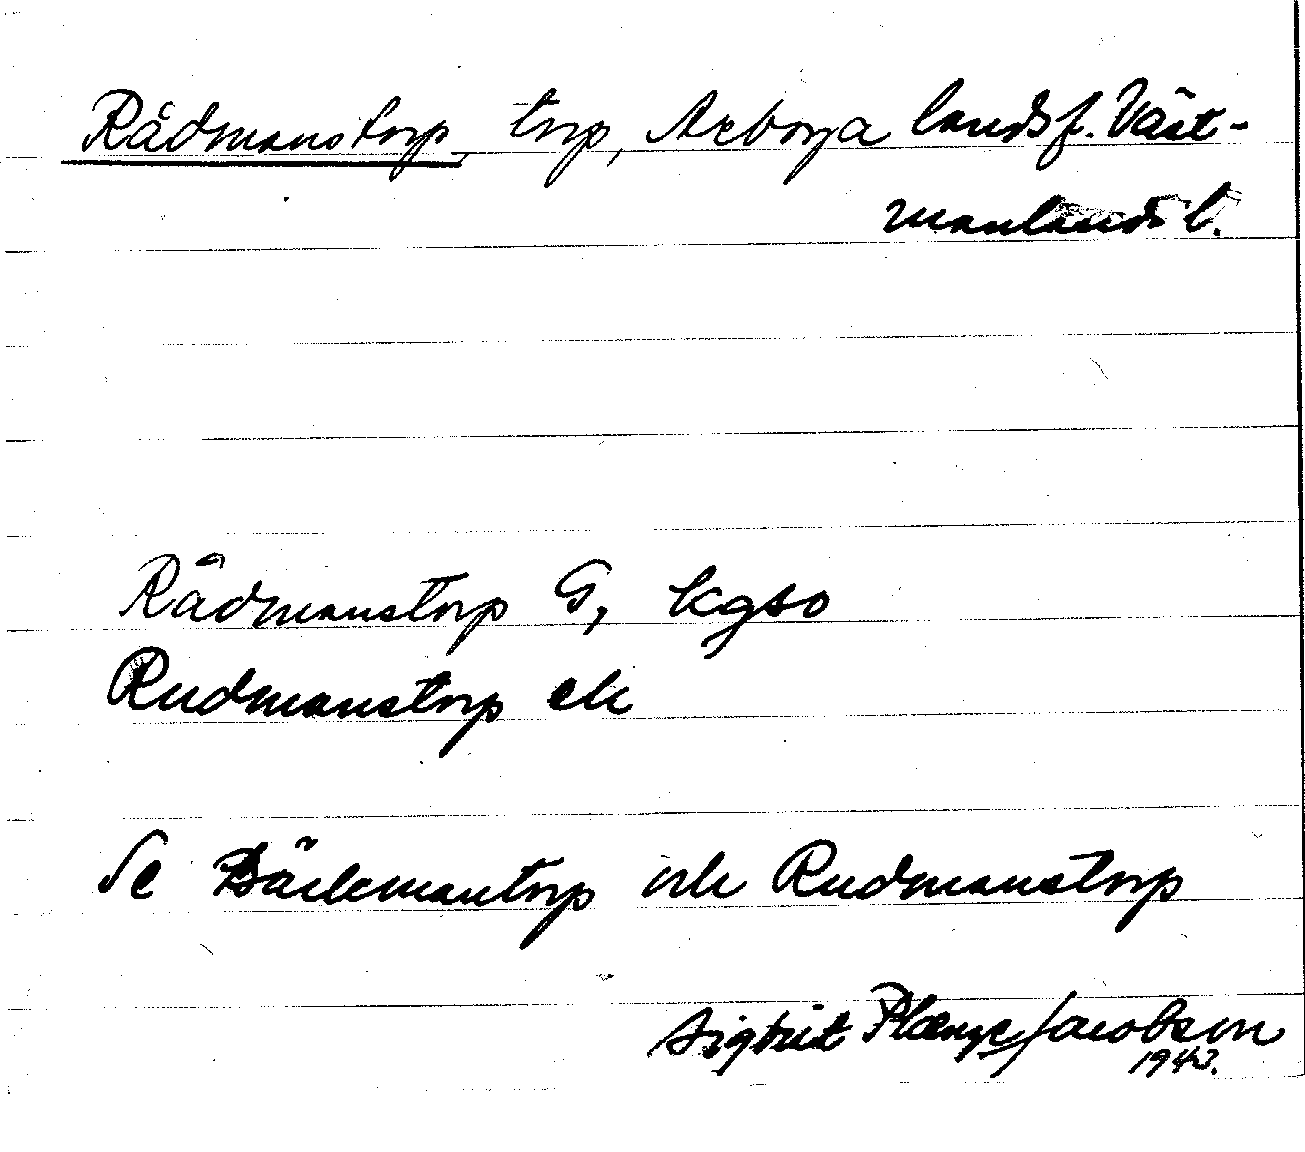 Rådmanstorp, torp, Arboga landsf. Väst-
manlands l.
Rådmanstorp G, kgso
Rudmanstorp ek
Se Bäckmantorp och Rudmanstorp
Sigbrit Plænge Jacobson
1943.